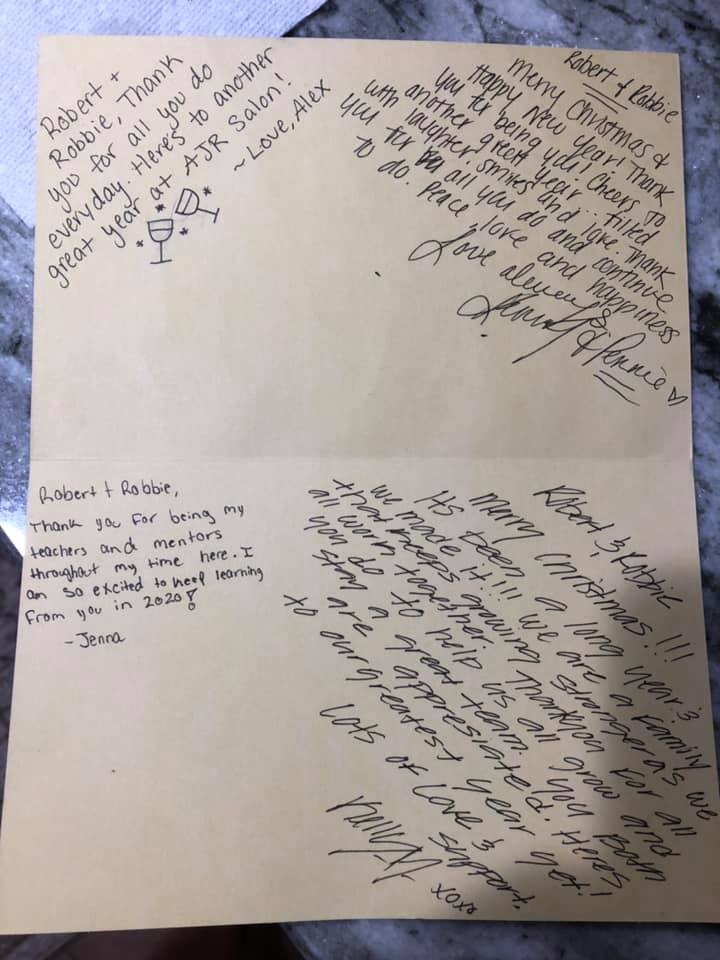 Robert +
Robbie, Thank
you for all you do
everyday. Here's to another
great year at AJR Salon!
~Love, Alex
Robert & Robbie
Merry Christmas &
Happy New Year! Thank
you for being you! Cheers to
another great year... filled
with laughter, smiles and love. Thank
you for all you do and continue
to do. Peace love and happiness
Love always
Robert + Robbie,
Thank you for being my
teachers and mentors
throughout my time here. I
am so excited to keep learning
from you in 2020!
- Jenna
Robert & Robbie
Merry Christmas!!!
Its been a long year &
we made it!!! We are a family
that keeps growing stronger as we
all work together. Thankyou for all
you do to help us all grow and
stay a great team. You Both
are appresiated. Heres
to our greatest year yet!!
Lots of Love &
support.
Kelly
xoxo